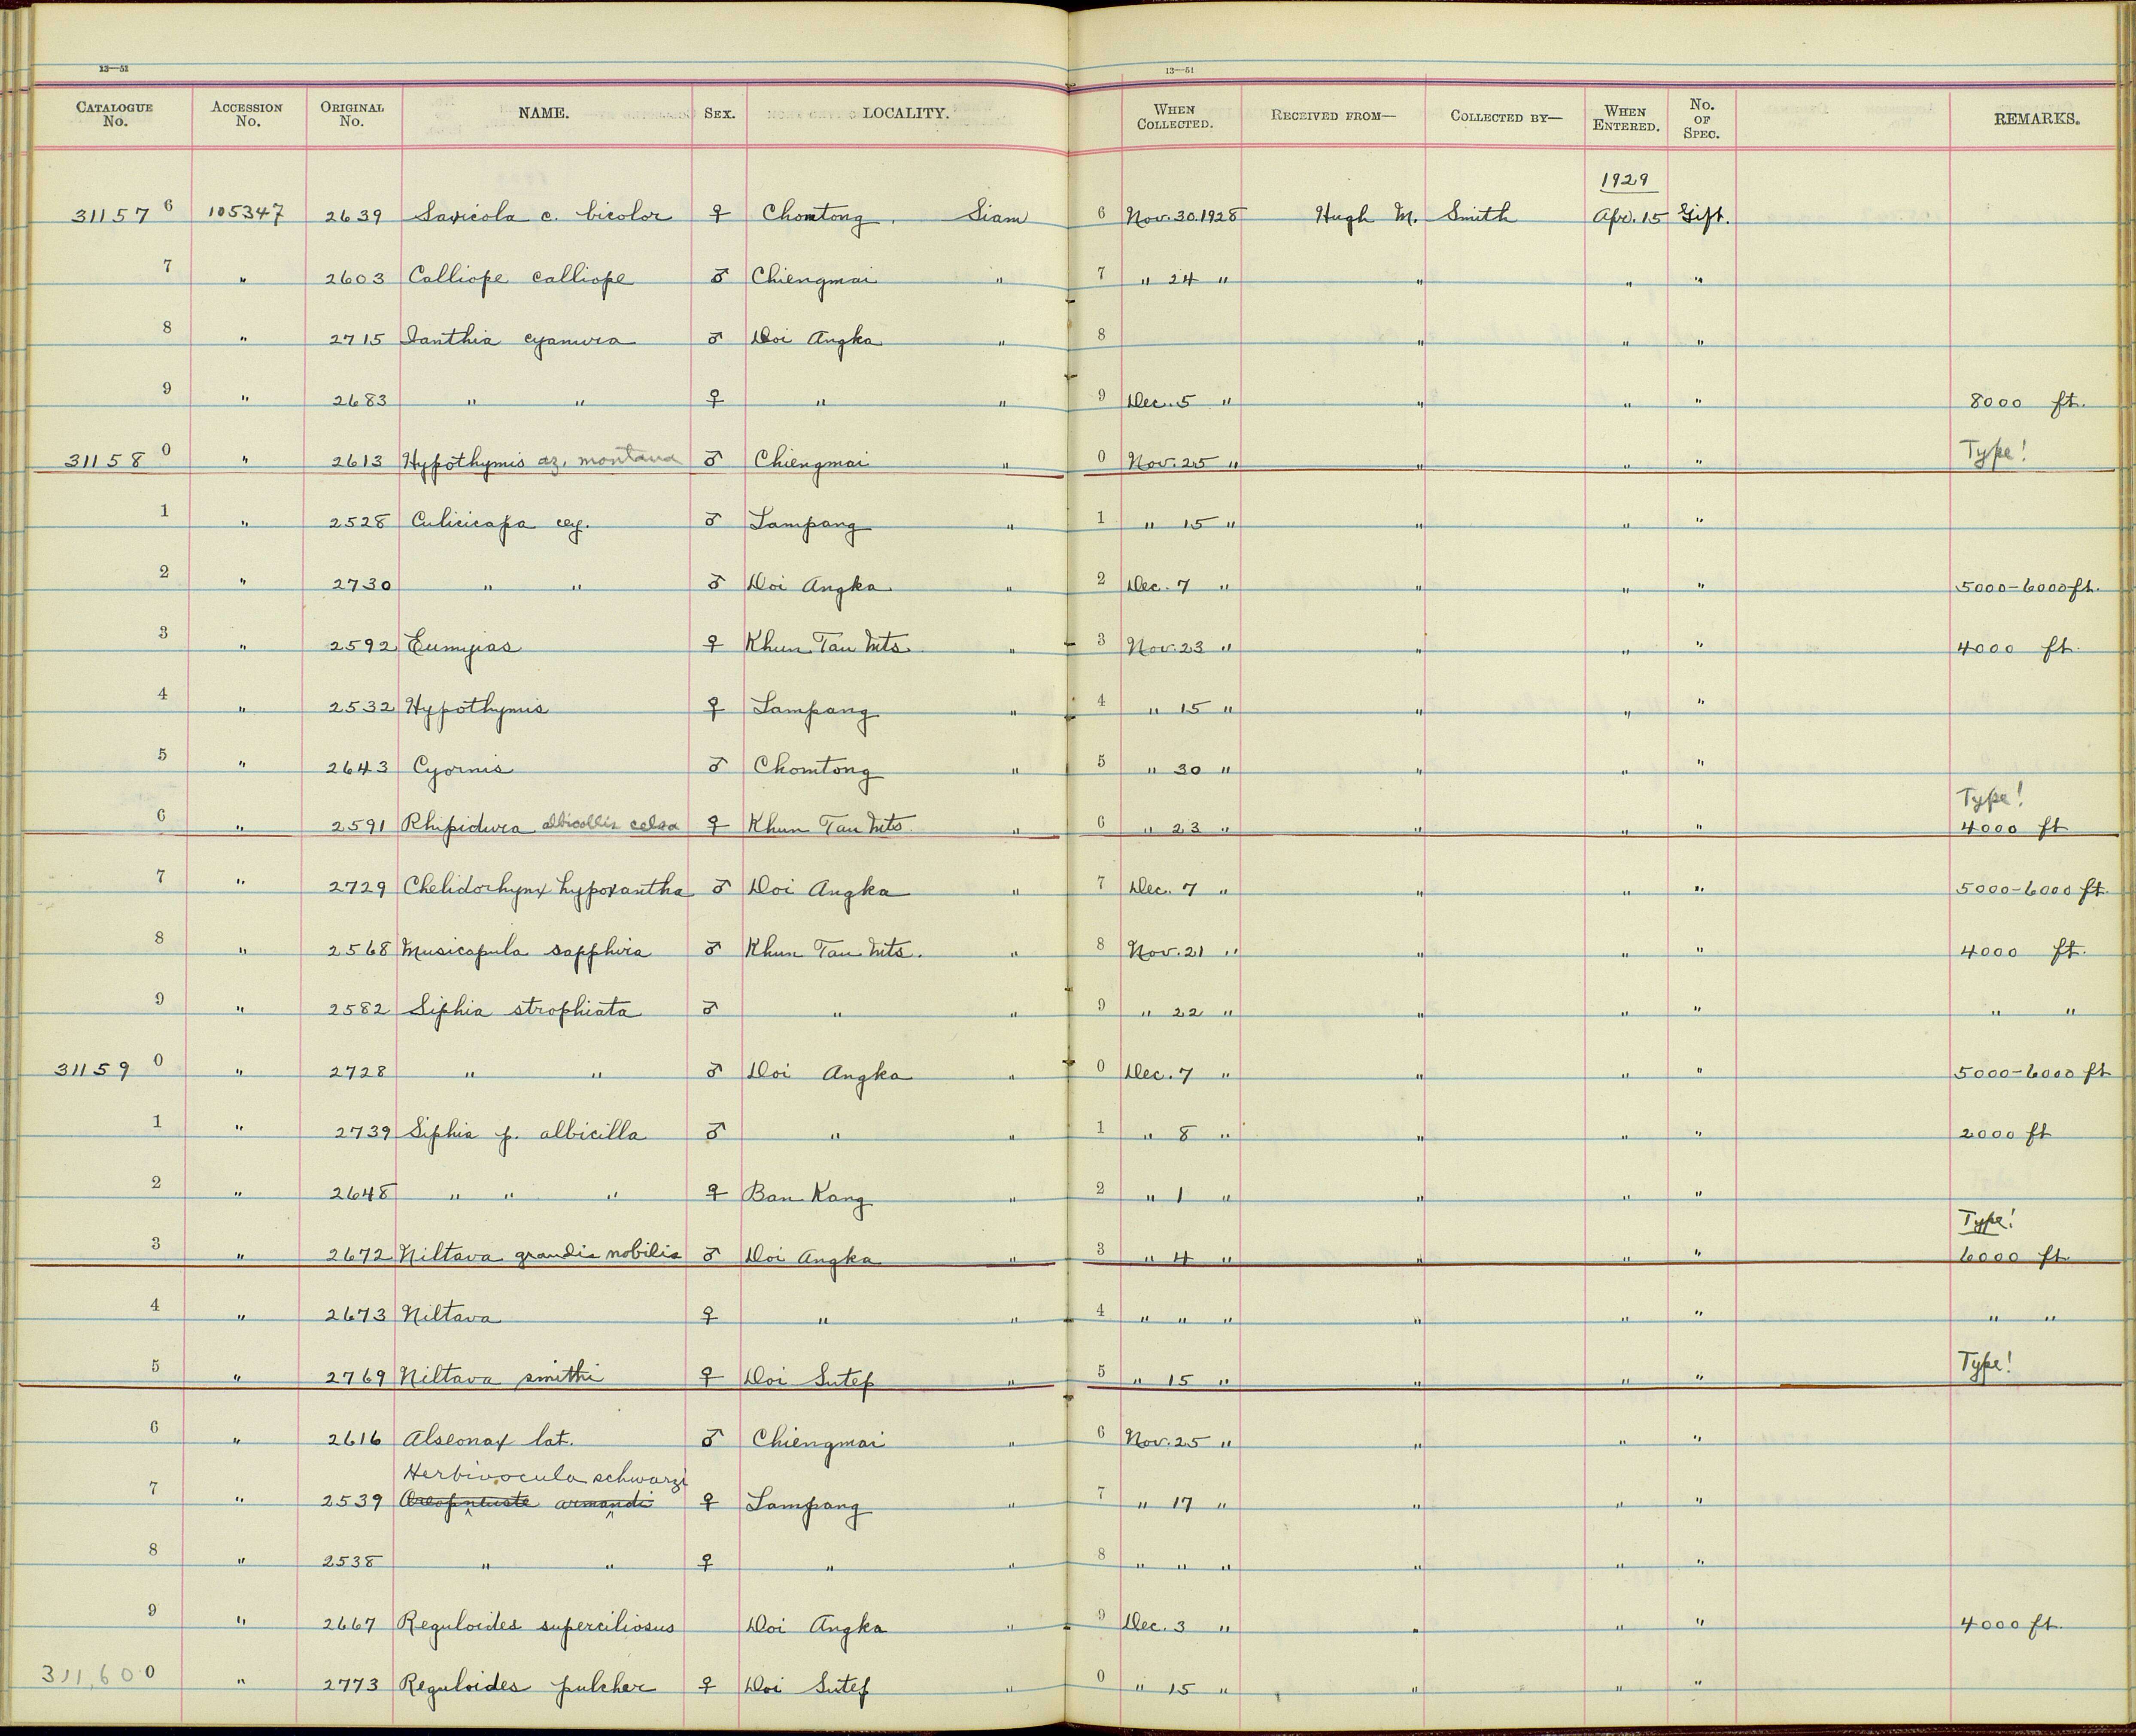 13—51 13—51
CATALOGUE No. ACCESSION No. ORIGINAL No. NAME. SEX. LOCALITY. WHEN COLLECTED. RECEIVED FROM— COLLECTED BY— WHEN ENTERED. No. OF SPEC. REMARKS.
1929
311576 105347 2639 Saxicola c. bicolor ♀ Chomtong. Siam 6 Nov. 30. 1928 Hugh M. Smith Apr. 15 Gift.
7 " 2603 Calliope calliope ♂ Chiengmai " 7 " 24 " " " "
8 " 2715 Ianthia cyanura ♂ Doi Angka " 8 " " "
9 " 2683 " " ♀ " " 9 Dec. 5 " " " " 8000 ft.
311580 " 2613 Hypothymis az. montana ♂ Chiengmai " 0 Nov. 25 " " " " Type!
1 " 2528 Culicicapa cey. ♂ Lampang " 1 " 15 " " " "
2 " 2730 " " ♂ Doi Angka " 2 Dec. 7 " " " " 5000-6000 ft.
3 " 2592 Eumyias ♀ Khun Tan Mts. " 3 Nov. 23 " " " " 4000 ft.
4 " 2532 Hypothymis ♀ Lampang " 4 " 15 " " " "
5 " 2643 Cyornis ♂ Chomtong " 5 " 30 " " " "
Type!
6 " 2591 Rhipidura albicollis celsa ♀ Khun Tan Mts. " 6 " 23 " " " " 4000 ft
7 " 2729 Chelidorhynx hypoxantha ♂ Doi Angka " 7 Dec. 7 " " " " 5000-6000 ft.
8 " 2568 Musicapula sapphira ♂ Khun Tan Mts. " 8 Nov. 21 " " " " 4000 ft.
9 " 2582 Siphia strophiata ♂ " " 9 " 22 " " " " " "
311590 " 2728 " " ♂ Doi Angka " 0 Dec. 7 " " " " 5000-6000 ft
1 " 2739 Siphia p. albicilla ♂ " " 1 " 8 " " " " 2000 ft
2 " 2648 " " " ♀ Ban Kang " 2 " 1 " " " "
Type!
3 " 2672 Niltava grandis nobilis ♂ Doi Angka " 3 " 4 " " " " 6000 ft
4 " 2673 Niltava ♀ " " 4 " " " " " " " "
5 " 2769 Niltava smithi ♀ Doi Sutep " 5 " 15 " " " " Type!
6 " 2616 Alseonax lat. ♂ Chiengmai " 6 Nov. 25 " " " "
Herbivocula schwarzi
7 " 2539 armandi ♀ Lampang " 7 " 17 " " " "
8 " 2538 " " ♀ " " 8 " " " " " "
9 " 2667 Reguloides superciliosus Doi Angka " 9 Dec. 3 " " " " 4000 ft.
311,600 " 2773 Reguloides pulcher ♀ Doi Sutep " 0 " 15 " " " "